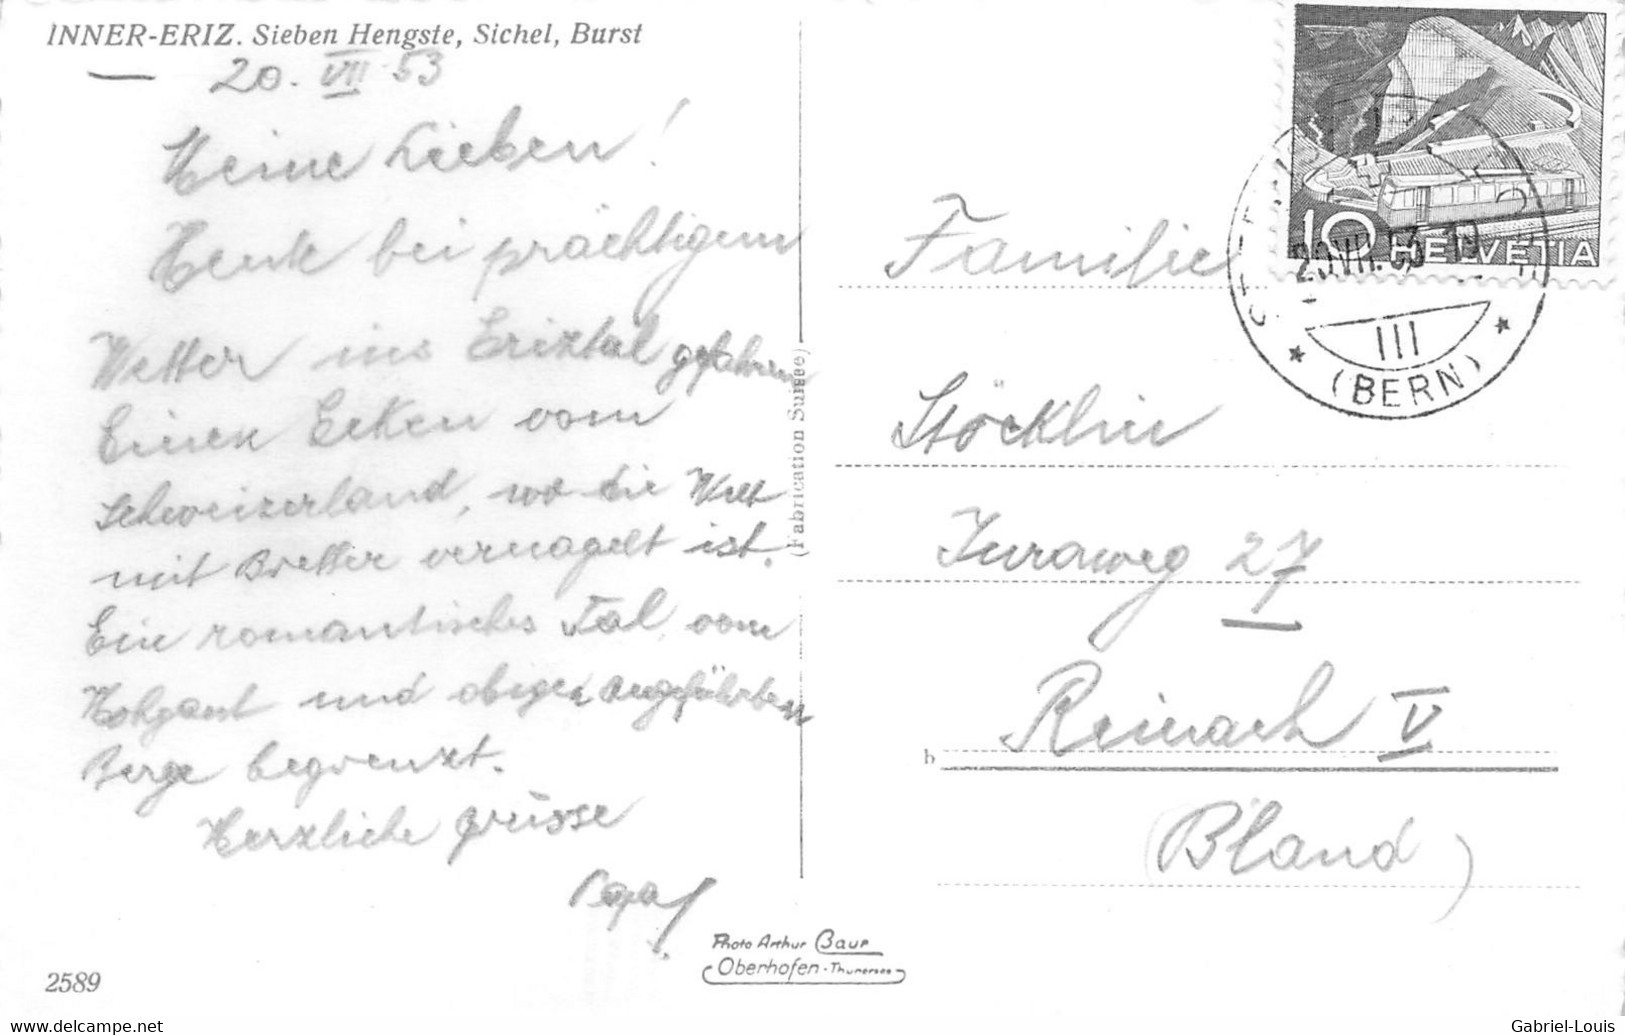 INNER-ERIZ. Sieben Hengste, Sichel, Burst
20. VII 53
Meine Lieben!
Heute bei prächtigem
Wetter ins Eriztal gefahren
Einen Ecken vom
Schweizerland, wo die Welt
mit Bretter vernagelt ist.
Ein romantisches Tal, vom
Hohgant und obigen angeführten
Berge begrenzt.
Herzliche Grüsse
Papa
2589
(Fabrication Suisse)
Photo Arthur Baur
Oberhofen-Thunersee
10 HELVETIA
20.VII.53
III
(BERN)
Familie
Stöcklin
Juraweg 27
b Reinach V
(Bland)
Gabriel-Louis
www.delcampe.net